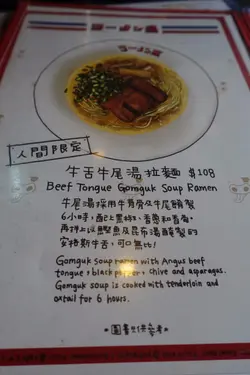 ラーメン屋
人間限定
牛舌牛尾湯拉麵 $108
Beef Tongue Gomguk Soup Ramen
牛尾湯採用牛脊骨及牛尾熬製
6小時，配上黑椒、香蔥和露筍，
再拼上以鰹魚及昆布湯醃製的
安格斯牛舌，可口無比！
Gomguk soup ramen with Angus beef
tongue, black pepper, chive and asparagus.
Gomguk soup is cooked with tenderloin and
oxtail for 6 hours.
*圖畫只供參考*